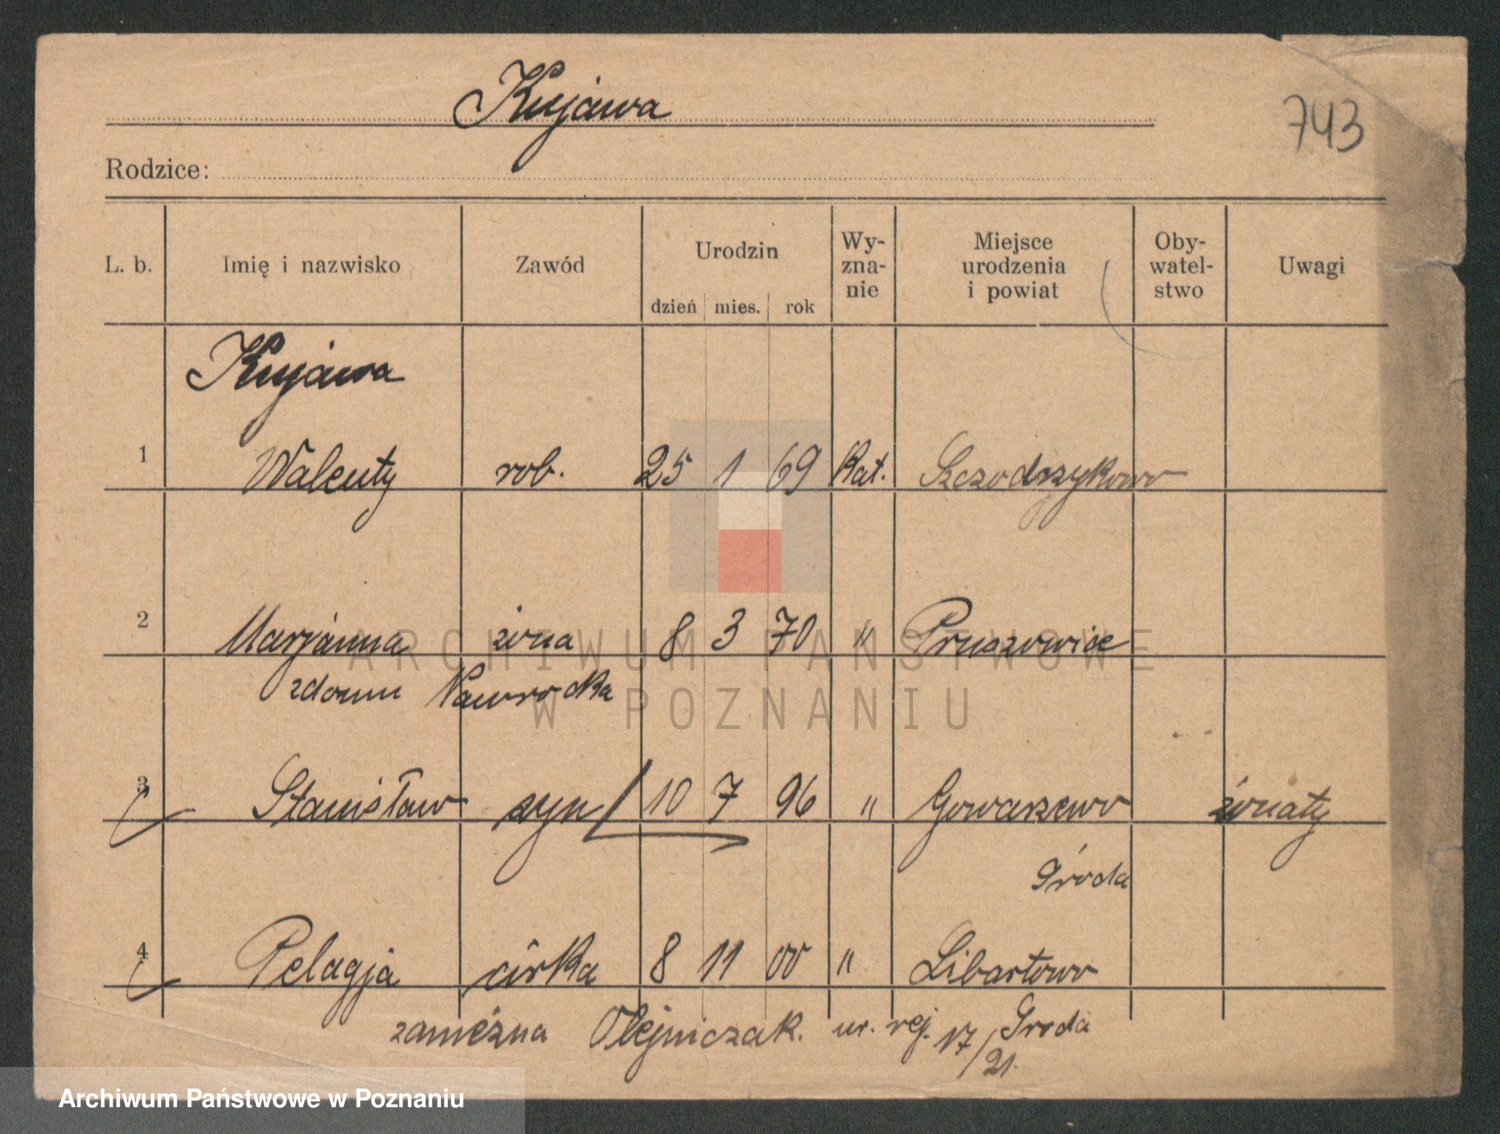 Kujawa
743
Rodzice:
L. b. Imię i nazwisko Zawód Urodzin dzień mies. rok Wy-zna-nie Miejsce urodzenia i powiat Oby-watel-stwo Uwagi
Kujawa
1 Walenty rob. 25 1 69 Kat. Szczodrzykowo
2 Marjanna żona 8 3 70 " Pruszowice
zdomu Nawrocka
3 Stanisław syn 10 7 96 " Gowarzewo żonaty
Środa
4 Pelagja córka 8 11 00 " Libartowo
zamężna Olejniczak. nr. rej. 17/21. Środa
ARCHIWUM PAŃSTWOWE
W POZNANIU
Archiwum Państwowe w Poznaniu